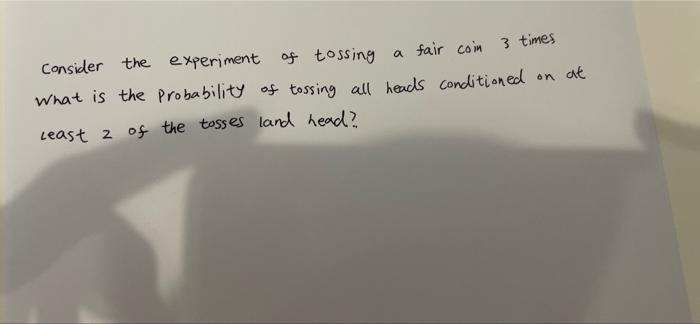 Consider the experiment of tossing a fair coin 3 times
What is the Probability of tossing all heads conditioned on at
Least 2 of the tosses land head?